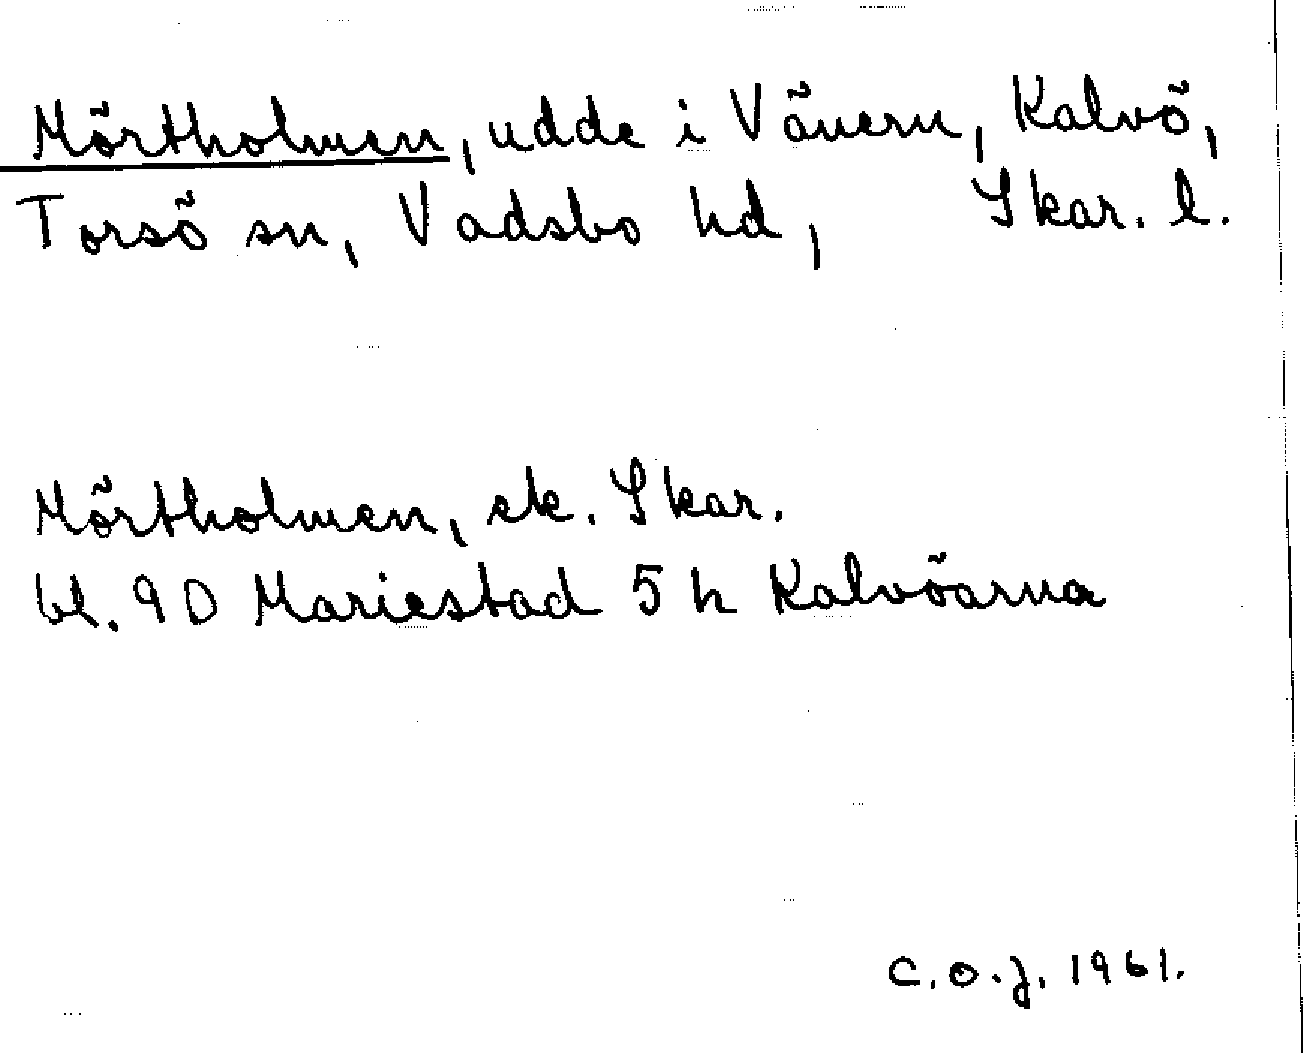 Mörtholmen, udde i Vänern, Kalvö,
Torsö sn, Vadsbo hd, Skar. l.
Mörtholmen, ek. Skar.
bl. 9D Mariestad 5 h Kalvöarna
C.O.J. 1961.